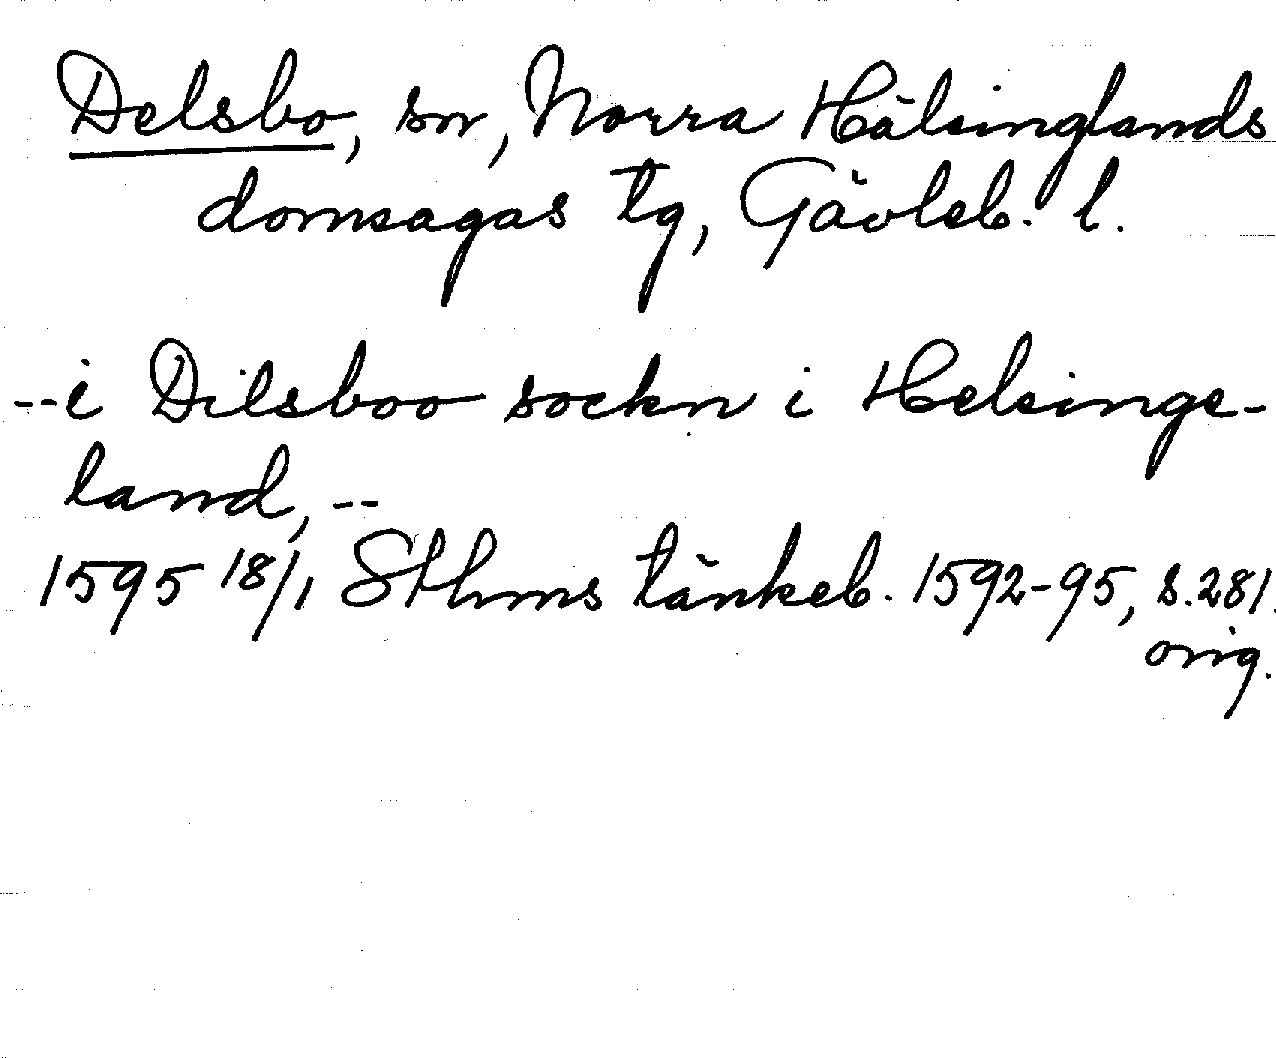 Delsbo, sn, Norra Hälsinglands
domsagas tg, Gävleb. l.
--i Dilsboo sockn i Helsinge-
land, --
1595 18/1 Sthms tänkeb. 1592-95, s. 281.
orig.